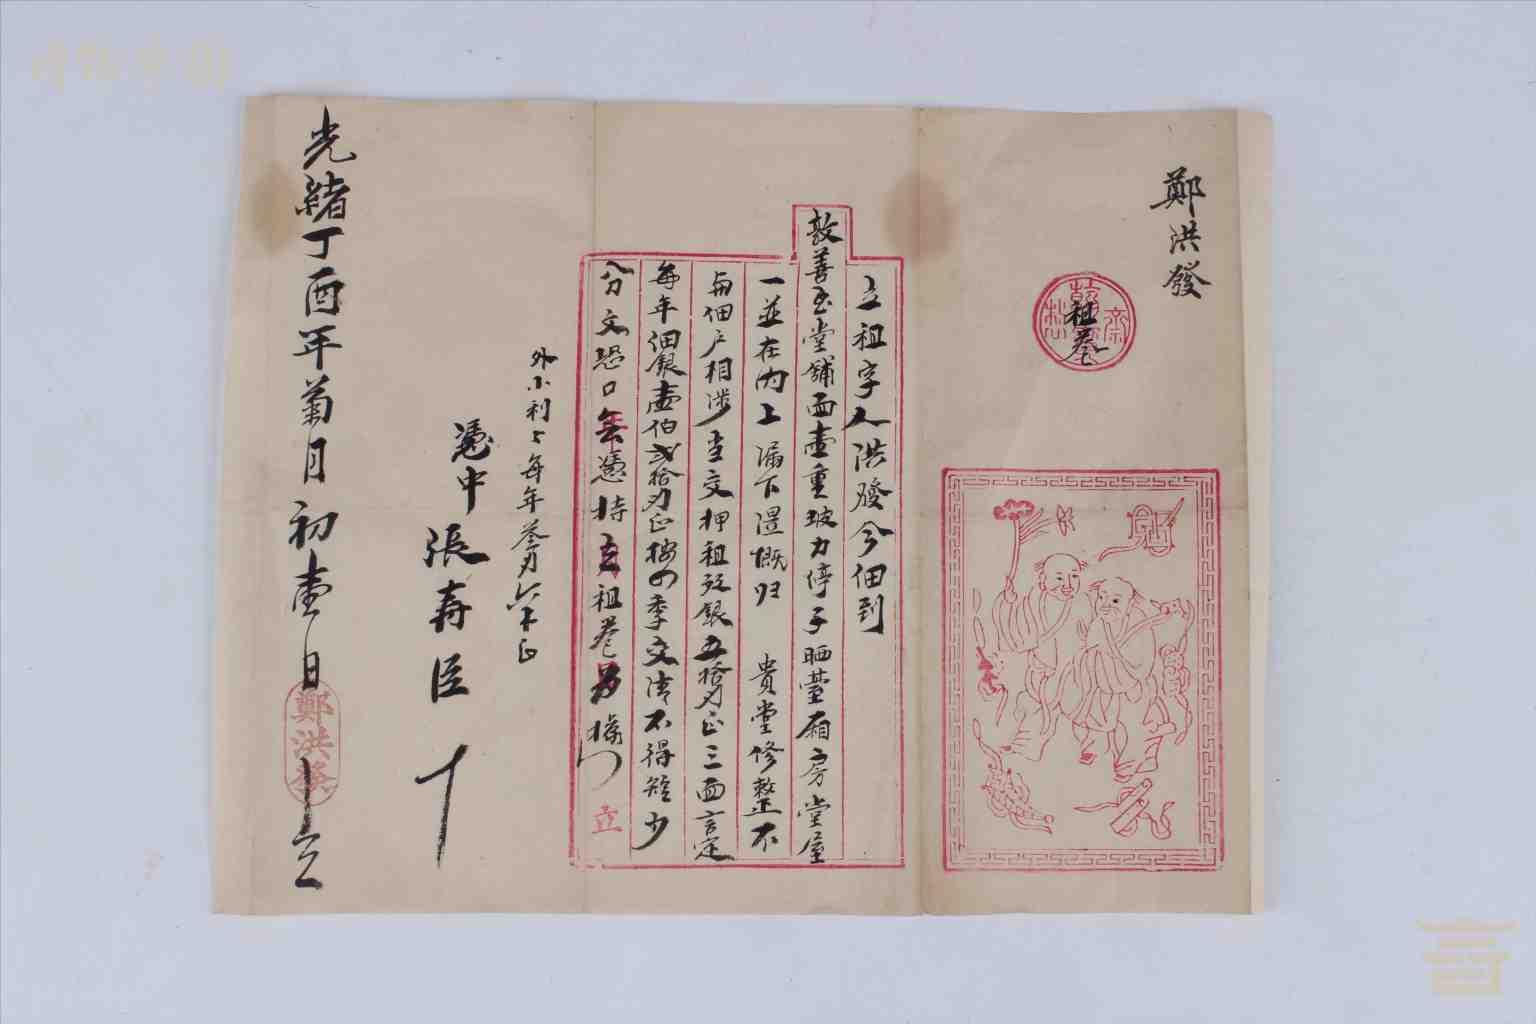 鄭洪發
租券
立租字人洪發今佃到
敦善玉堂舖面壹重坡力停子晒臺厢房堂屋
一並在内上漏下濕慨归 貴堂修整不
与佃户相涉当交押租玖銀五拾刄正三面言定
每年佃銀壹伯弍拾刄正按四季交清不得短少
分文恐口無憑持立租券為據 立
外小利 每年叁刄六卜正
憑中 張寿臣 十
光緒丁酉年菊月初壹日 十立
鄭洪發